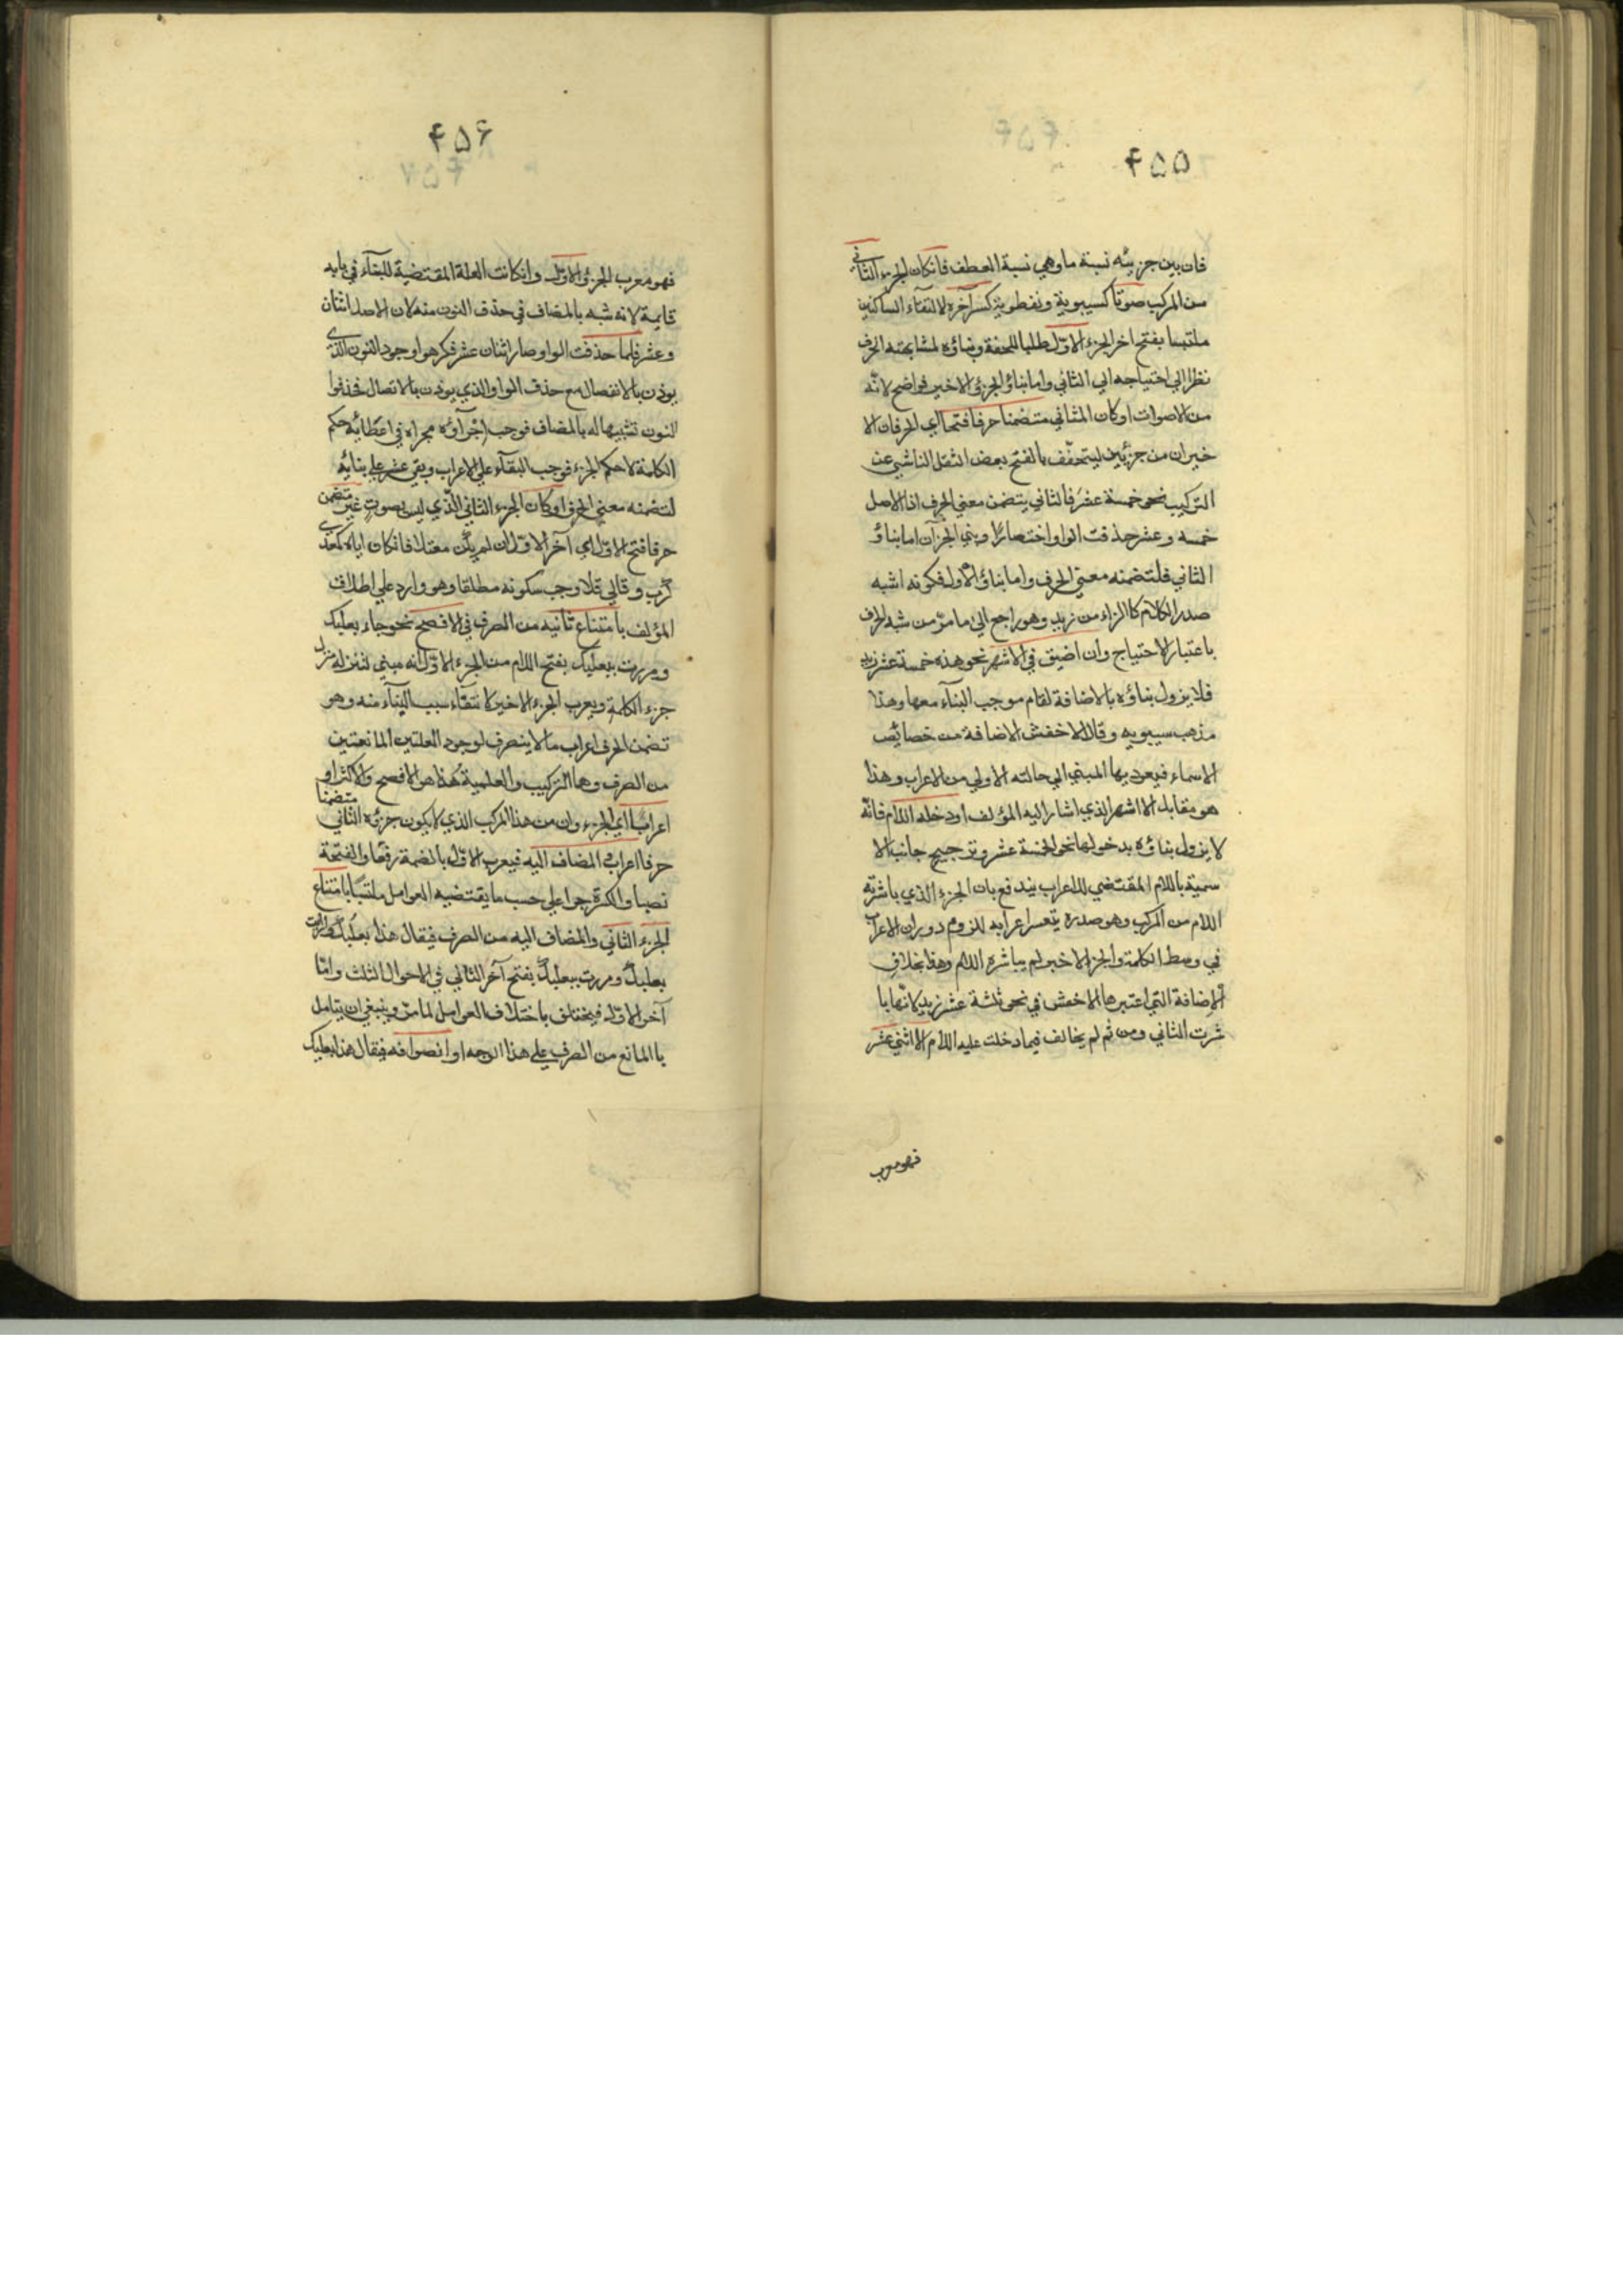 ۴۵۵
فان بين جزئيه نسبة ما وهي نسبة العطف فانكان الجزء الثاني
من المركب صوتا كسيبوية ونفطوية كسر آخره لالتقاء الساكنين
ملتبسا بفتح اخر الجزء الاوّل طلبا للخفة وبناؤه لمشابهته الحرف
نظرا الي احتياجه الي الثاني واما بناؤ الجزؤ الاخير فواضح لانّه
من الاصوات او كان الثاني متضمنا حرفا فتحا اي الحرفان الا
خيران من جزئين ليتخفّف بالفتح بعض الثقل الناشي عن
التركيب نحو خمسة عشر فالثاني يتضمن معني الحرف اذا الاصل
خمسه وعشر حذفت الواو اختصارًا وبني الجزآن اما بناؤ
الثاني فلتضمنه معني الحرف واما بناؤ الاول فكونه اشبه
صدر الكلام كالزاء من زيد وهو راجع الي ما مرّ من شبه الحرف
باعتبار الاحتياج وان اضيق في الاشهر نحو هذه خمسة عشر زيد
فلا يزول بناؤه بالاضافة لقام موجب البناء معها وهذا
مذهب سيبويه وقال الاخفش الاضافة من خصائص
الاسماء فيعود بها المبني الي حالته الاولي من الاعراب وهذا
هو مقابل الاشهر الذي اشار اليه المؤلف او دخله اللام فانّه
لا يزول بناؤه بدخولها نحو الخمسة عشر وترجيح جانب الا
سمية باللام المقتضي للاعراب يندفع بان الجزء الذي باشرته
اللام من المركب وهو صدره يتعسر اعرابه للزوم دوران الاعراب
في وسط الكلمة والجزء الاخير لم يباشره اللام وهذا بخلاف
الاضافة التي اعتبرها الاخفش في نحو ثلثة عشر زيد لانّها با
شرت الثاني ومن ثم لم يخالف فيما دخلت عليه اللام الا اثني عشر
فهو معرب
۴۵۶
فهو معرب الجزؤ الاوّل وانكانت العلة المقتضية للبناء في بابه
قايمة لانه شبه بالمضاف في حذف النون منه لان الاصل اثنان
وعشر فلما حذفت الواو صار اثنان عشر فكرهوا وجود النون الذي
يوذن بالانفصال مع حذف الواو الذي يوذن بالاتصال فحذفوا
النون تشبيها له بالمضاف فوجب اجرآؤه مجراه في اعطائه حكم
الكلمة لا حكم الجزء فوجب البقآء علي الاعراب وبقي عشر علي بنائه
لتضمنه معني الحرف او كان الجزء الثاني الّذي ليس بصوت غير متضمن
حرفا فتح الاوّل اي آخر الاوّل ان لم يكن معتلا فانكان اياه كمعدي
كرب وقالي قلا وجب سكونه مطلقا وهو وارد علي اطلاق
المؤلف بامتناع ثانيه من الصرف في الافصح نحو جاء بعلبك
ومررت ببعلبك بفتح اللام من الجزء الاوّل لانه مبني لتنزله منزل
جزء الكلمة ويعرب الجزء الاخير لانتفاء سبب البنآء منه وهو
تضمن الحرف اعراب ما لا ينصرف لوجود العلتين المانعتين
من الصرف وهما التركيب والعلمية هذا هو الافصح والاكثر او
اعرابا اي الجزء وان من هذا المركب الذي لا يكون جزؤه الثاني متضمنا
حرفا اعراب المضاف اليه فيعرب الاوّل بالضمة رفعًا والفتحة
نصبا والكسرة جرا علي حسب ما يقتضيه العوامل ملتبسًا بامتناع
الجزء الثاني والمضاف اليه من الصرف فيقال هذا بعلبك ورايت
بعلبك ومررت ببعلبك بفتح آخر الثاني في الاحوال الثلث وامّا
آخر الاوّل فيختلف باختلاف العوامل لما مرّ وينبغي ان يتامل
با المانع من الصرف علي هذا الوجه او انصرافه فيقال هذا بعلبك